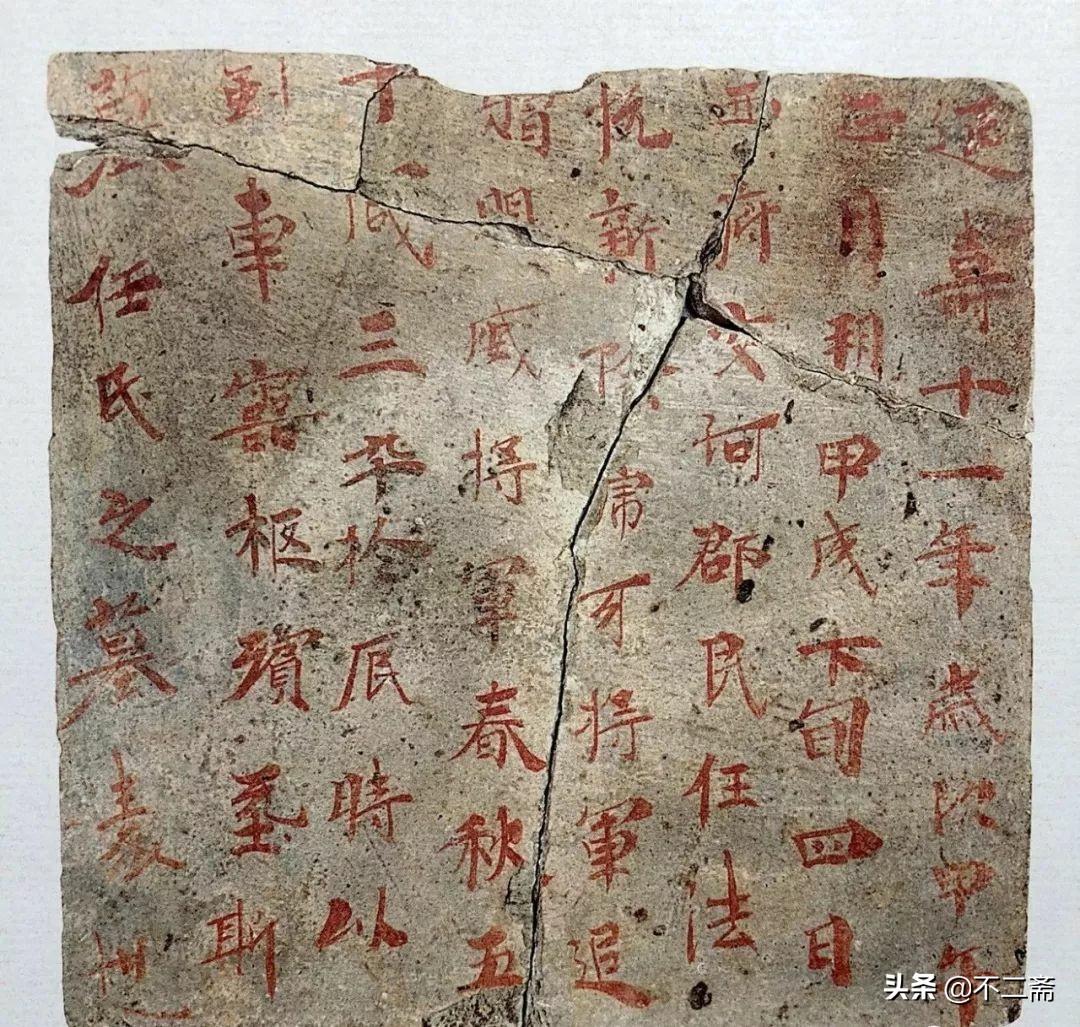 延壽十一年歲次甲午
正月朔甲戌下旬四日
西府交河郡民任法
悅新除虎牙將軍追
贈明威將軍春秋五
十咸三卒於辰時以
車靈柩殯葬斯
任氏之墓表也
头条 @不二斋